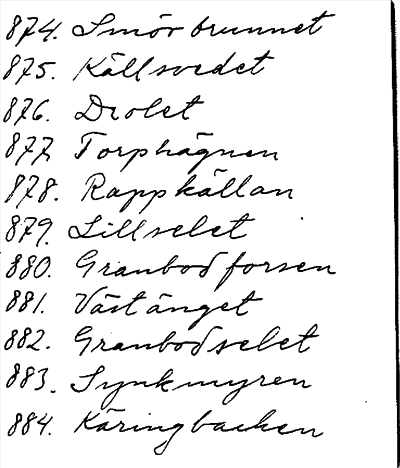 874. Smörbrunnet
875. Källsvedet
876. Drolet
877. Torphägnen
878. Rappkällan
879. Lillselet
880. Granbodforsen
881. Västänget
882. Granbodselet
883. Synkmyren
884. Käringbacken